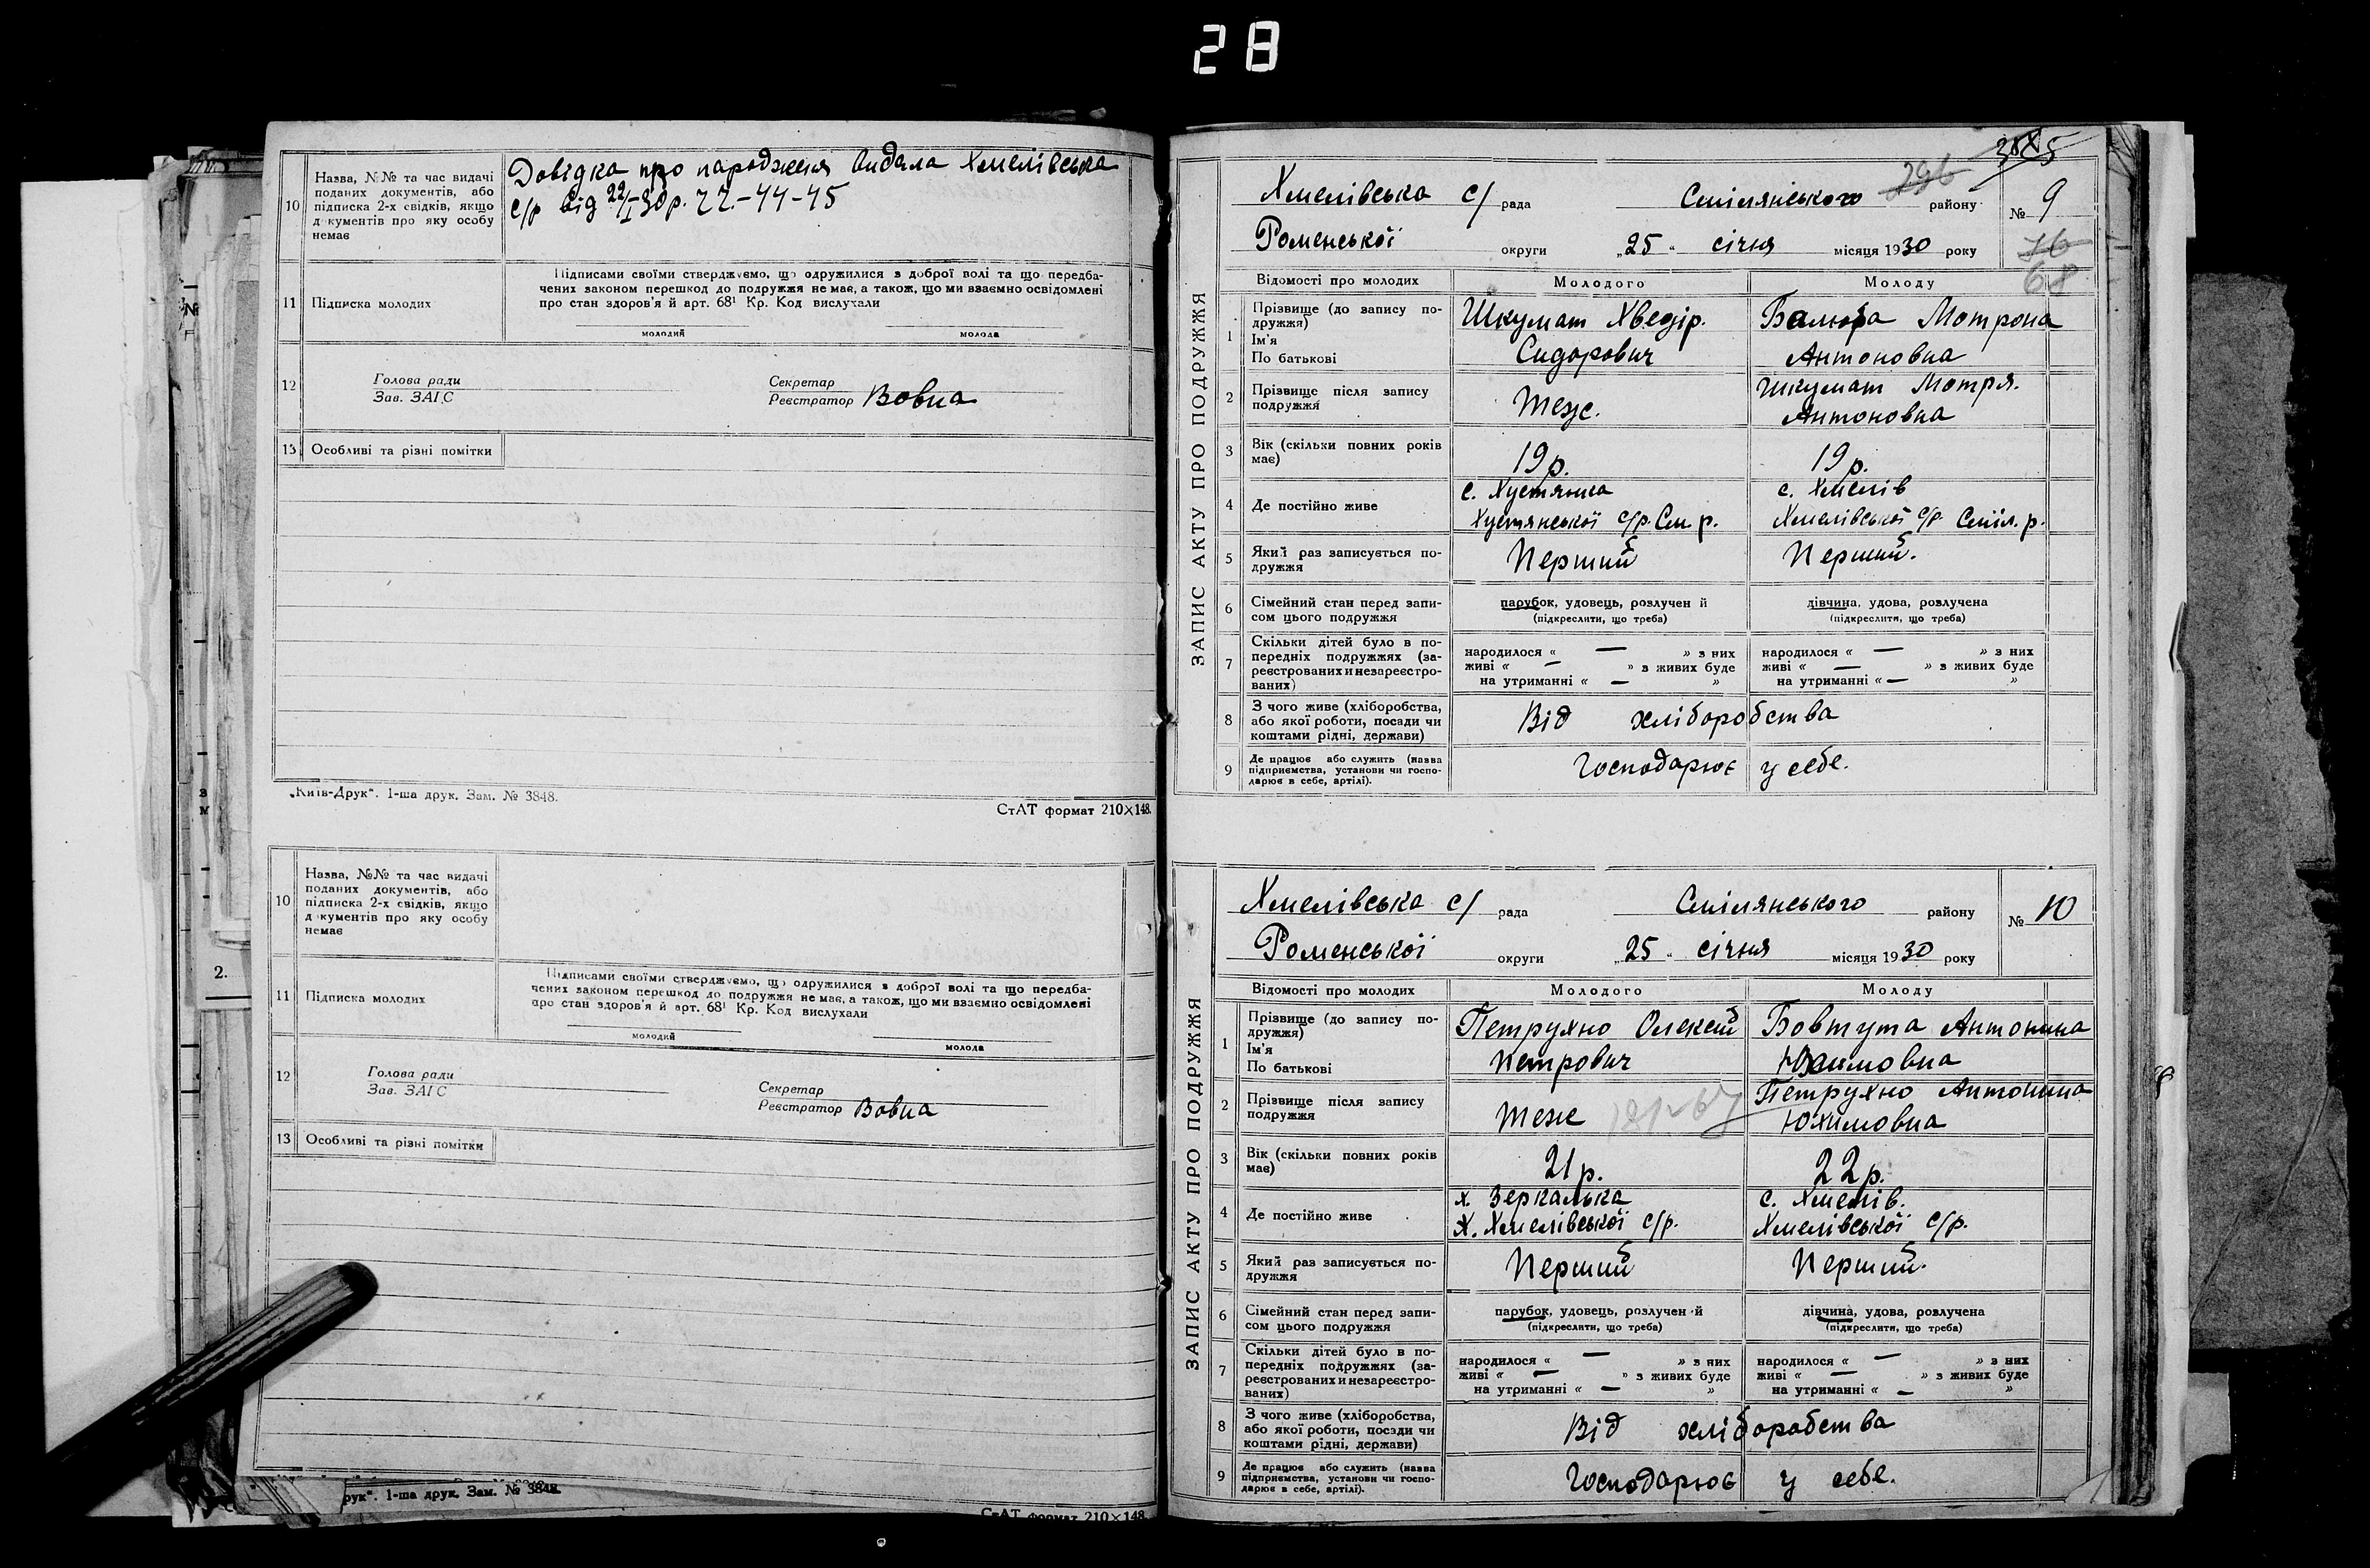 28
10
Назва, №№ та час видачі
поданих документів, або
підписка 2-х свідків, якщо
документів про яку особу
немає
Довідка про народження видала Хмелівська
с/р від 22/I 30р. 22.-44-45
11
Підписка молодих
Підписами своїми стверджуємо, що одружилися з доброї волі та що передба-
чених законом перешкод до подружжя не має, а також, що ми взаємно освідомлені
про стан здоров'я й арт. 68¹ Кр. Код вислухали
молодий
молода
12
Голова ради
Зав. ЗАГС
Секретар
Реєстратор Вовна
13
Особливі та різні помітки
„Київ-Друк“. 1-ша друк. Зам. № 3848.
СтАТ формат 210×148.
10
Назва, №№ та час видачі
поданих документів, або
підписка 2-х свідків, якщо
документів про яку особу
немає
11
Підписка молодих
Підписами своїми стверджуємо, що одружилися з доброї волі та що передба-
чених законом перешкод до подружжя не має, а також, що ми взаємно освідомлені
про стан здоров'я й арт. 68¹ Кр. Код вислухали
молодий
молода
12
Голова ради
Зав. ЗАГС
Секретар
Реєстратор Вовна
13
Особливі та різні помітки
2.
рук“. 1-ша друк. Зам. № 3848.
СтАТ формат 210×148.
296
ЗАПИС АКТУ ПРО ПОДРУЖЖЯ
Хмелівська с/ рада Смілянського району № 9
Роменської округи „25“ січня місяця 1930 року
76
68
Відомості про молодих
Молодого
Молоду
1
Прізвище (до запису по-
дружжя)
Ім'я
По батькові
Шкумат Хведір.
Сидорович
Балюра Мотрона
Антоновна
2
Прізвище після запису
подружжя
теж.
Шкумат Мотря.
Антоновна
3
Вік (скільки повних років
має)
19р.
19р.
4
Де постійно живе
с. Хустянка
Хустянської с/р. См. р.
с. Хмелів
Хмелівської с/р. Сміл. р.
5
Який раз записується по-
дружжя
Перший
Перший.
6
Сімейний стан перед запи-
сом цього подружжя
парубок, удовець, розлучений
(підкреслити, що треба)
дівчина, удова, розлучена
(підкреслити, що треба)
7
Скільки дітей було в по-
передніх подружжях (за-
реєстрованих и незареєстро-
ваних)
народилося « — » з них
живі « — » з живих буде
на утриманні « — »
народилося « — » з них
живі « — » з живих буде
на утриманні « — »
8
З чого живе (хліборобства,
або якої роботи, посади чи
коштами рідні, держави)
Від хліборобства
9
Де працює або служить (назва
підприємства, установи чи госпо-
дарює в себе, артілі).
Господарює у себе.
ЗАПИС АКТУ ПРО ПОДРУЖЖЯ
Хмелівська с/ рада Смілянського району № 10
Роменської округи „25“ січня місяця 1930 року
Відомості про молодих
Молодого
Молоду
1
Прізвище (до запису по-
дружжя)
Ім'я
По батькові
Петрухно Олексій
Петрович
Бовтута Антонина
Юхимовна
2
Прізвище після запису
подружжя
теж
Петрухно Антонина
Юхимовна
3
Вік (скільки повних років
має)
21р.
22р.
4
Де постійно живе
х. Зеркалька
Х. Хмелівської с/р.
с. Хмелів.
Хмелівської с/р.
5
Який раз записується по-
дружжя
Перший
Перший.
6
Сімейний стан перед запи-
сом цього подружжя
парубок, удовець, розлучений
(підкреслити, що треба)
дівчина, удова, розлучена
(підкреслити, що треба)
7
Скільки дітей було в по-
передніх подружжях (за-
реєстрованих и незареєстро-
ваних)
народилося « — » з них
живі « — » з живих буде
на утриманні « — »
народилося « — » з них
живі « — » з живих буде
на утриманні « — »
8
З чого живе (хліборобства,
або якої роботи, посади чи
коштами рідні, держави)
Від хліборобства
9
Де працює або служить (назва
підприємства, установи чи госпо-
дарює в себе, артілі).
Господарює у себе.